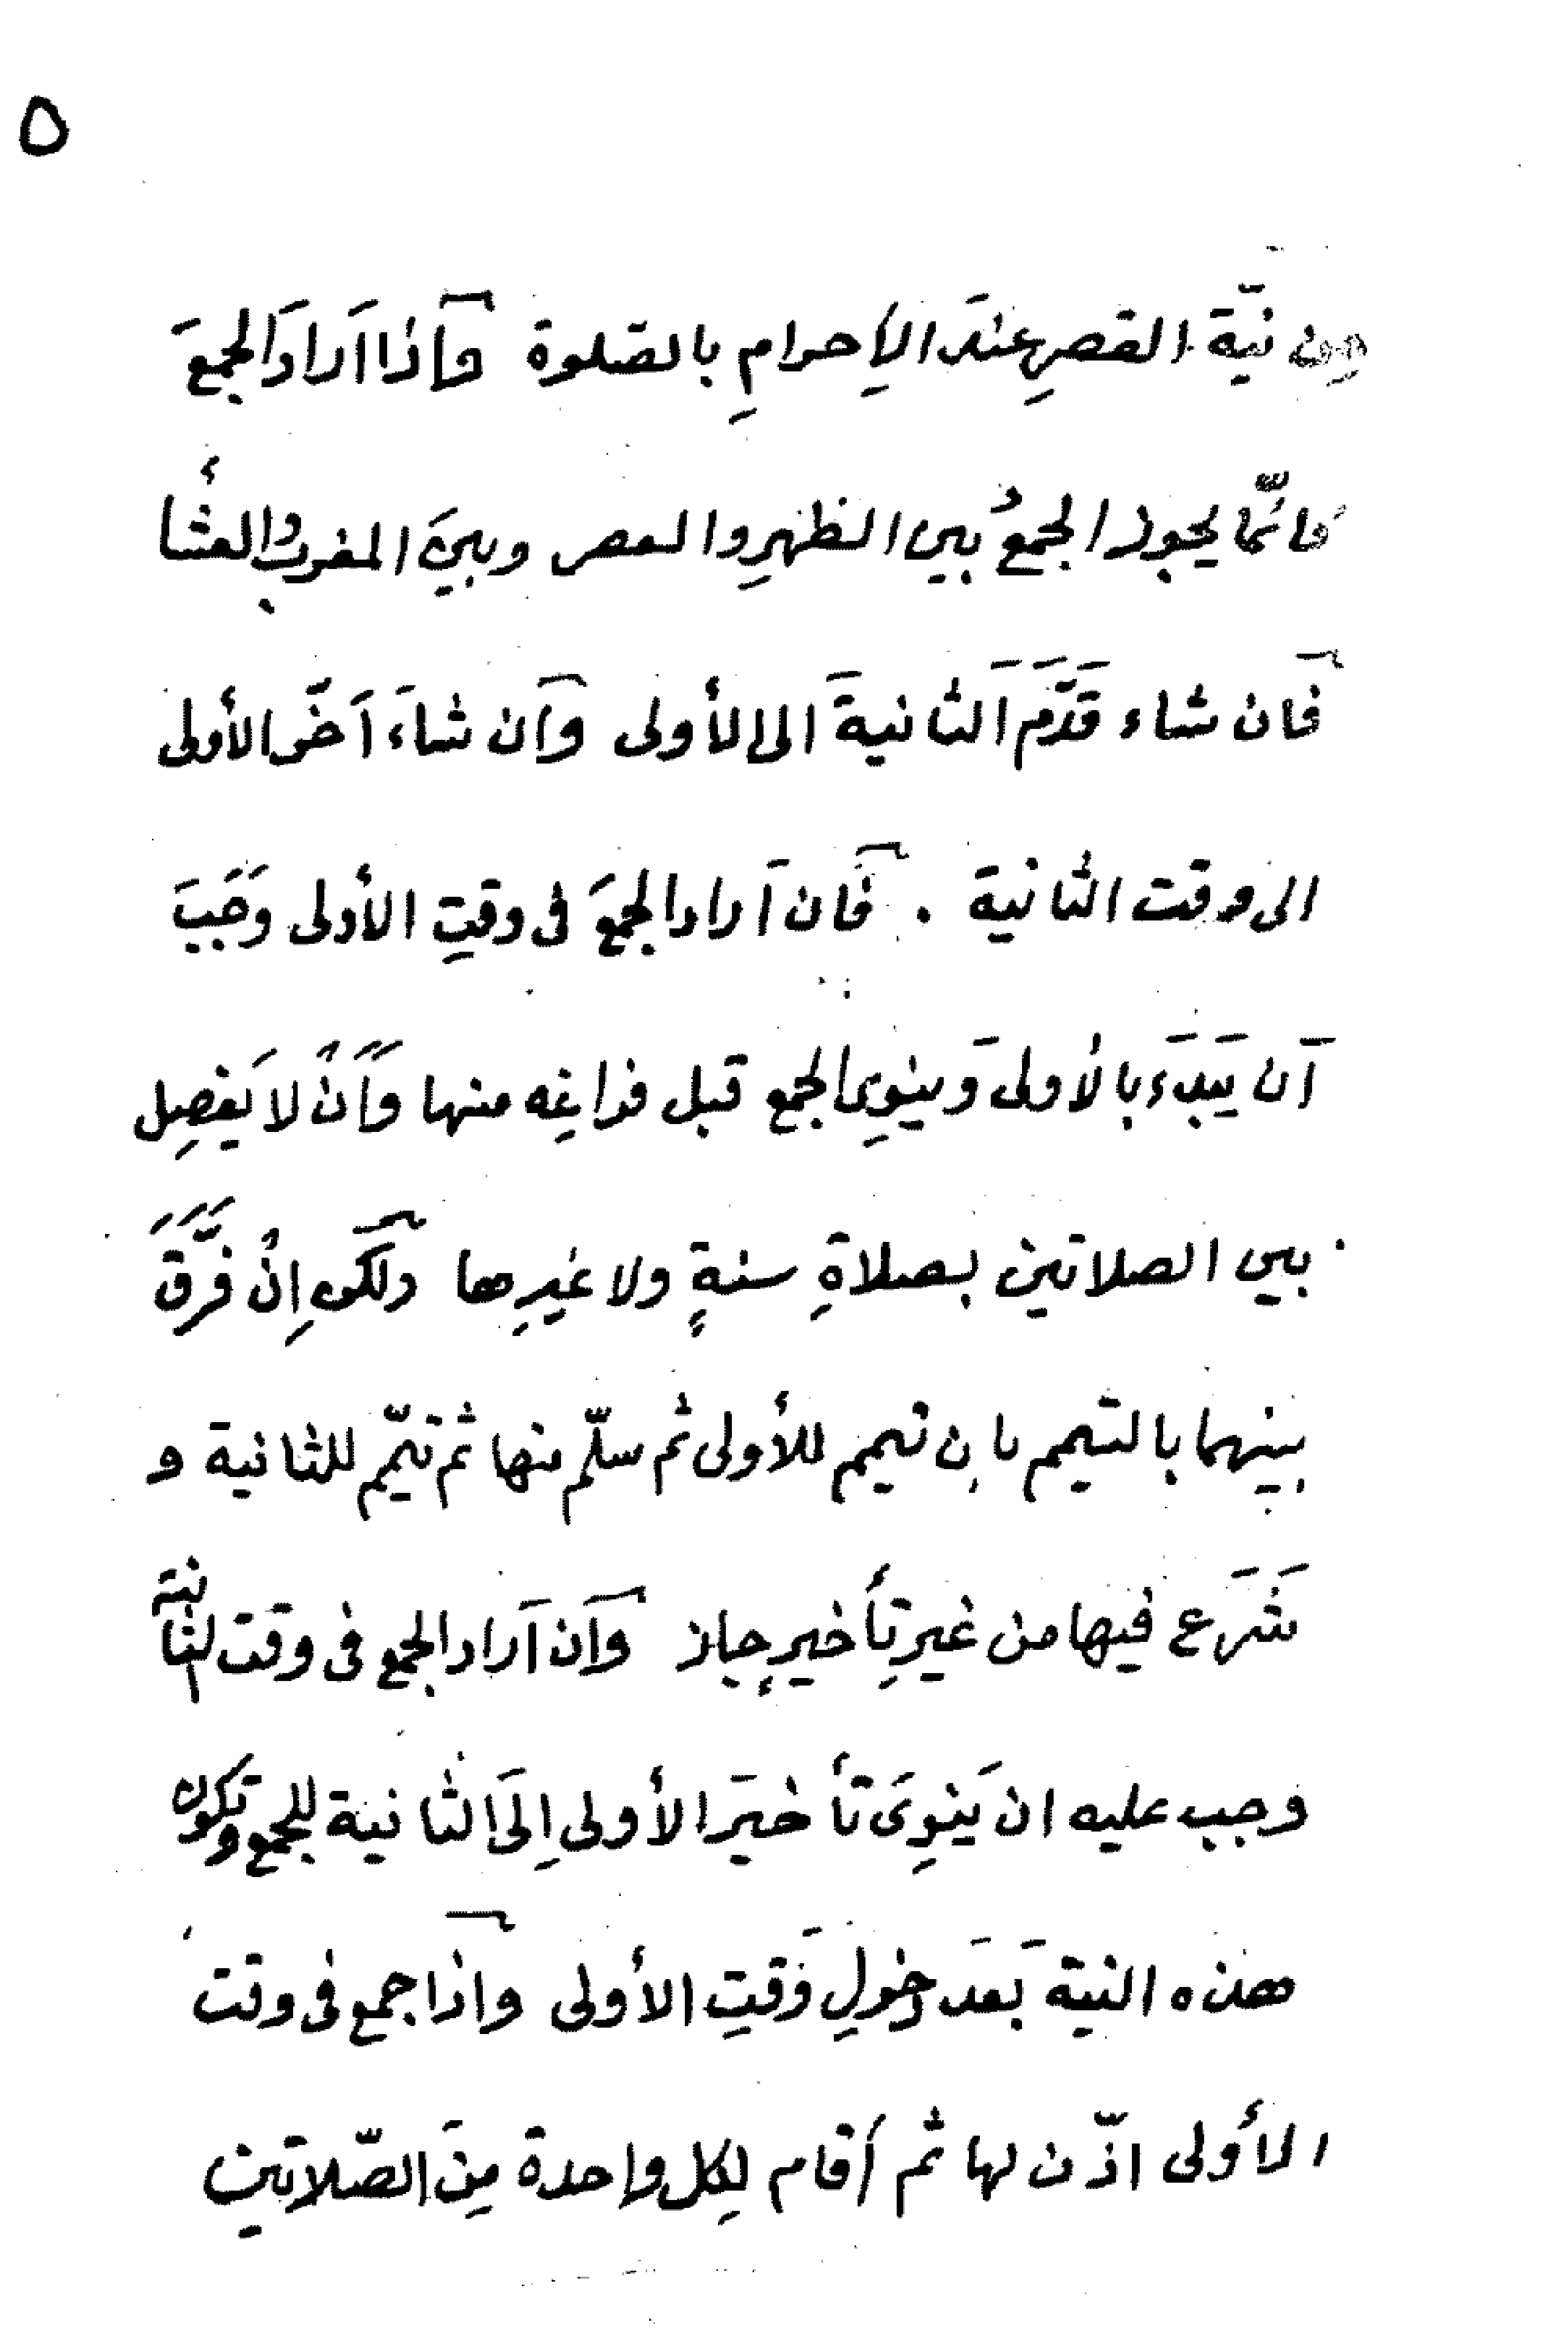 ٥
من نيّة القصرِ عندَ الإحرامِ بالصّلوة وَاذا اَرادَ الجمعَ
فانّمَا يجوز الجمعُ بين الظهرِ والعصر وبينَ المغربِ والعشأ
فَان شاء قَدَّمَ اَلثانيةَ الى الأولى وَان شاءَ اَخّر الأولى
الى وقت الثانية . فَان اَراد الجمعَ فى وقتِ الأولى وَجَبَ
اَن يَبدَء بالأولى وَينوِى الجمع قبل فراغِه منها وَاَنْ لا يَفصِل
بين الصلاتين بصلاةِ سنةٍ ولا غيرِها ولكن اِنْ فَرَّقَ
بينهما بالتيمم بان تيمم للأولى ثم سلّم منها ثم تيمّم للثانية و
شَرَع فيها من غير تأخيرٍ جاز وَان اَراد الجمع فى وقت الثانية
وجب عليه ان يَنوِىَ تأخيرَ الأولى اِلَى الثانية للجمع وتكون
هذه النية بَعدَ دخولِ وَقتِ الأولى واذا جمع فى وقت
الأولى اذّن لها ثم أقام لِكل واحدة مِنَ الصّلاتين